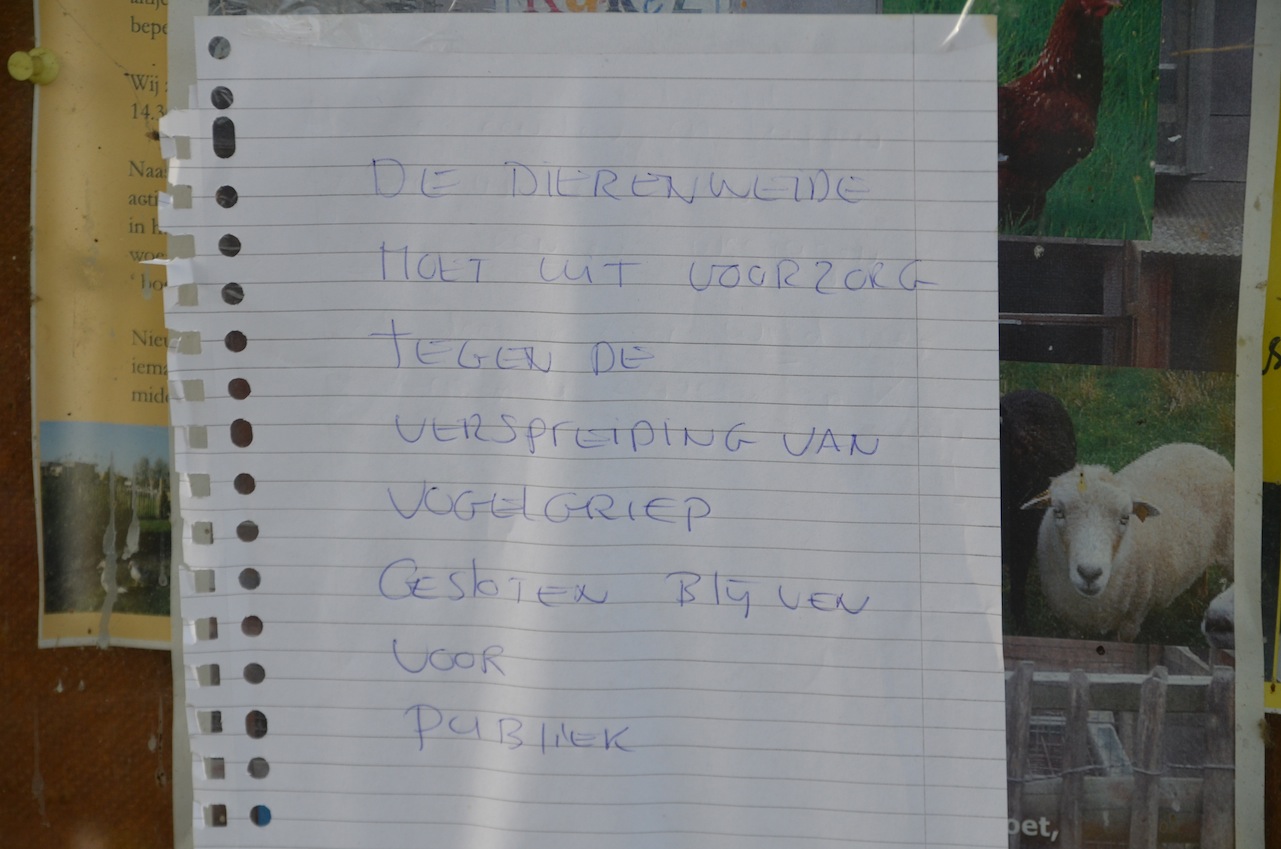 bepe
Wij
14.3
Naas
acti
in h
woe
bo
Nieu
iema
midd
DE DIERENWEIDE
MOET UIT VOORZORG
TEGEN DE
VERSPREIDING VAN
VOGELGRIEP
GESLOTEN BLIJVEN
VOOR
PUBLIEK
oet,